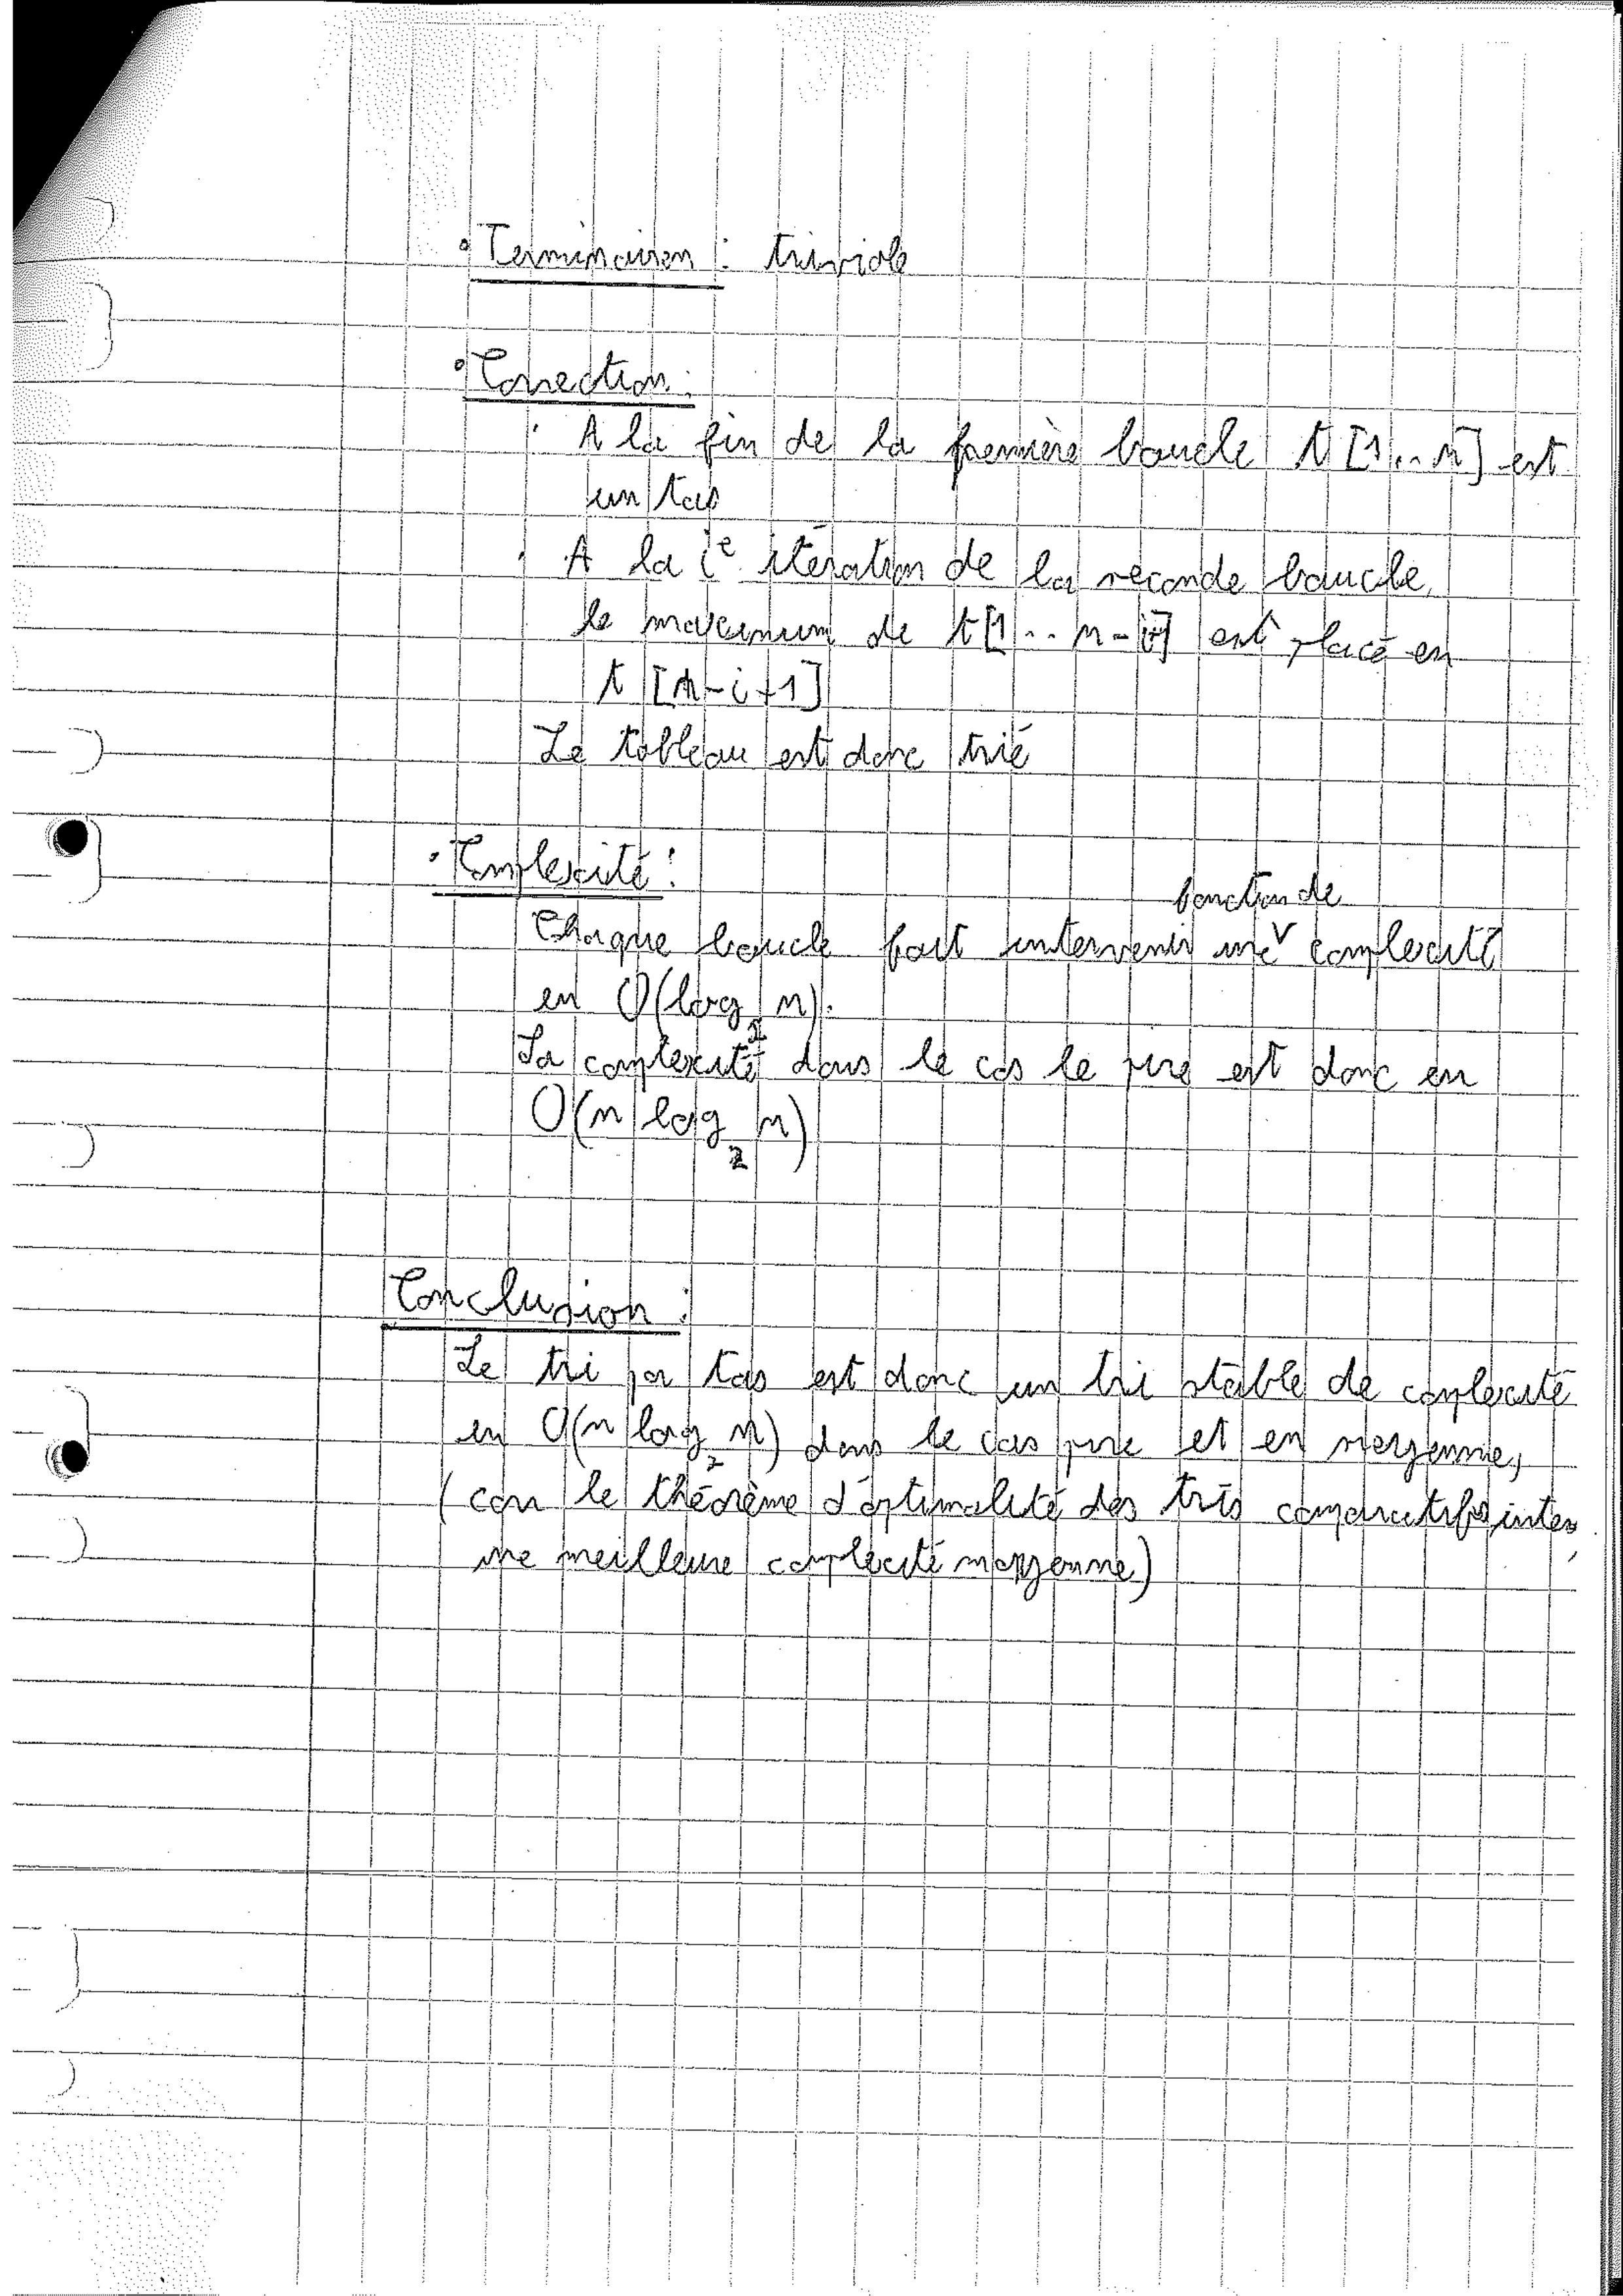 • Terminaison : triviale
• Correction :
· A la fin de la première boucle t [1..n] est
un tas
· A la iᵉ itération de la seconde boucle,
le maximum de t[1..n-i] est placé en
t [n-i+1]
Le tableau est donc trié
• Complexité :
fonction de
Chaque boucle fait intervenir une ∨ complexité
en O(log₂ n).
La complexité dans le cas le pire est donc en
O(n log₂ n)
Conclusion :
Le tri par tas est donc un tri stable de complexité
en O(n log₂ n) dans le cas pire et en moyenne,
(car le théorème d'optimalité des tris comparatifs inter
une meilleure complexité moyenne)